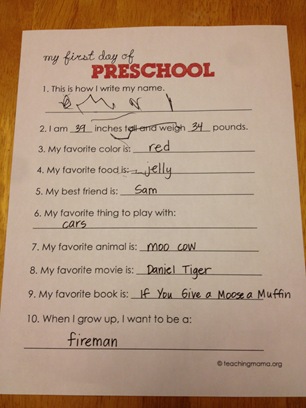 my first day of
PRESCHOOL
1. This is how I write my name.
2. I am 39 inches tall and weigh 34 pounds.
3. My favorite color is: red
4. My favorite food is: jelly
5. My best friend is: Sam
6. My favorite thing to play with:
cars
7. My favorite animal is: moo cow
8. My favorite movie is: Daniel Tiger
9. My favorite book is: If You Give a Moose a Muffin
10. When I grow up, I want to be a:
fireman
© teachingmama.org